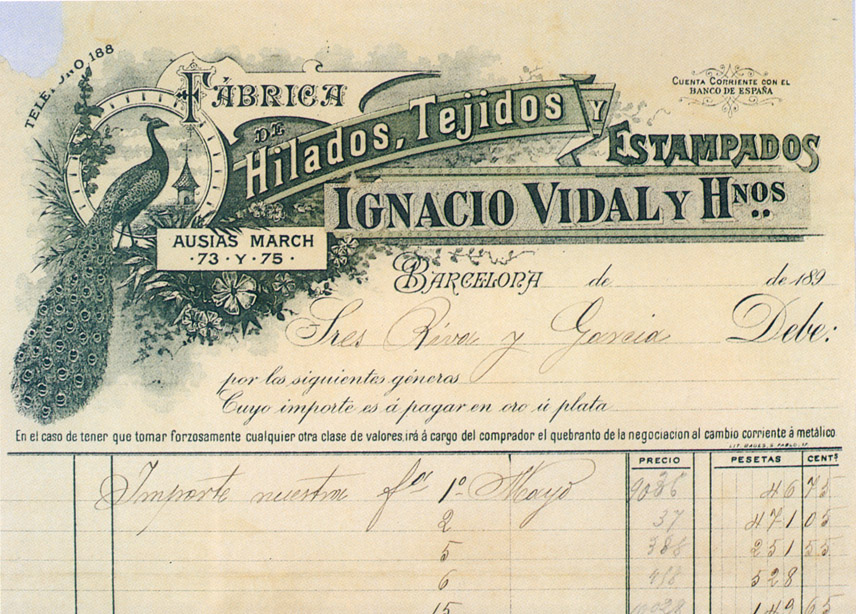 TELÉFONO 188
FÁBRICA
DE
Hilados, Tejidos Y
ESTAMPADOS
IGNACIO VIDAL Y Hnos
AUSIAS MARCH
· 73 · Y · 75 ·
CUENTA CORRIENTE CON EL
BANCO DE ESPAÑA
BARCELONA de de 189
Sres Riva y Garcia Debe:
por los siguientes géneros
Cuyo importe es á pagar en oro ú plata
En el caso de tener que tomar forzosamente cualquier otra clase de valores, irá á cargo del comprador el quebranto de la negociacion al cambio corriente à metálico
PRECIO PESETAS CENTS
Importe nuestra fra 1º Mayo 46 75
2 37 471 05
5 386 251 55
6 528
15 149 65